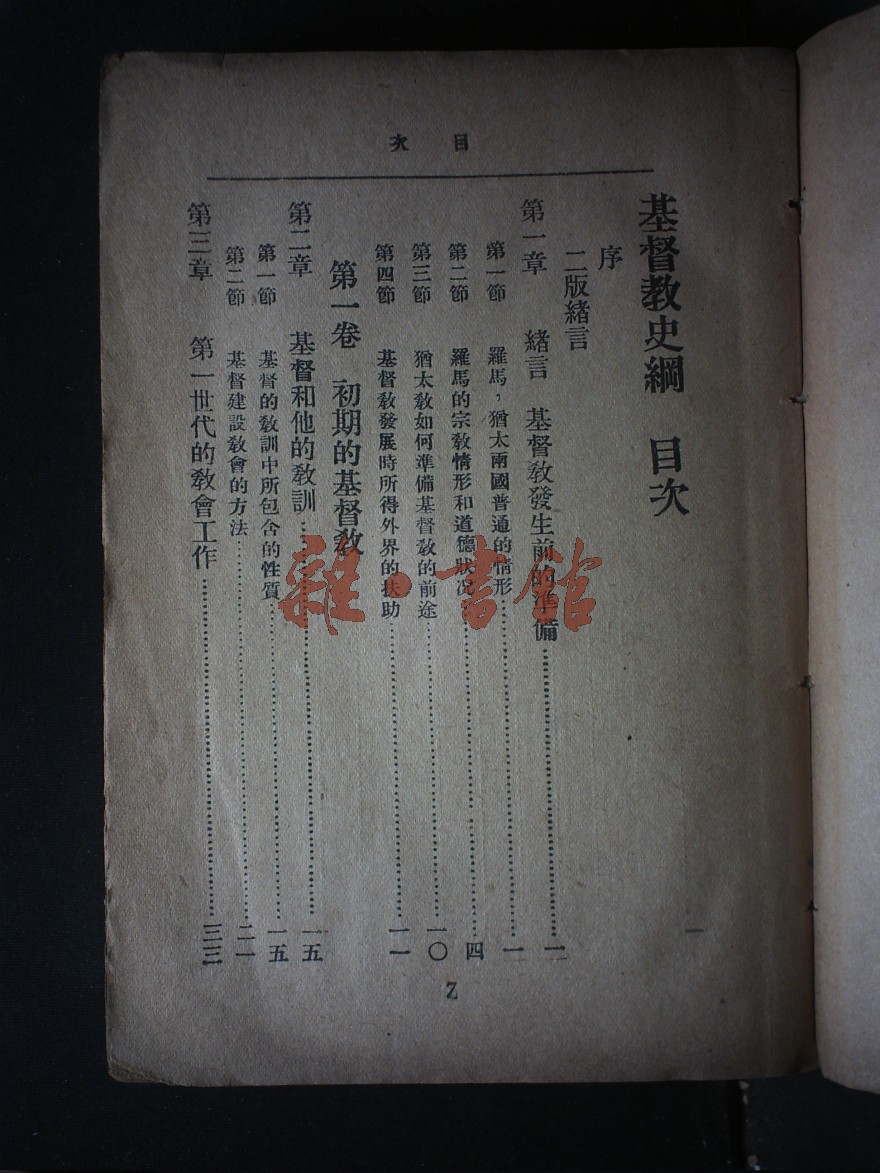 目次
基督教史綱 目次
序
二版緒言
第一章 緒言 基督教發生前的準備……一
第一節 羅馬，猶太兩國普通的情形……一
第二節 羅馬的宗教情形和道德狀况……四
第三節 猶太教如何準備基督教的前途……一〇
第四節 基督教發展時所得外界的扶助……一一
第一卷 初期的基督教
第二章 基督和他的教訓……一五
第一節 基督的教訓中所包含的性質……一五
第二節 基督建設教會的方法……二一
第三章 第一世代的教會工作……三三
一
Z
雜·書館